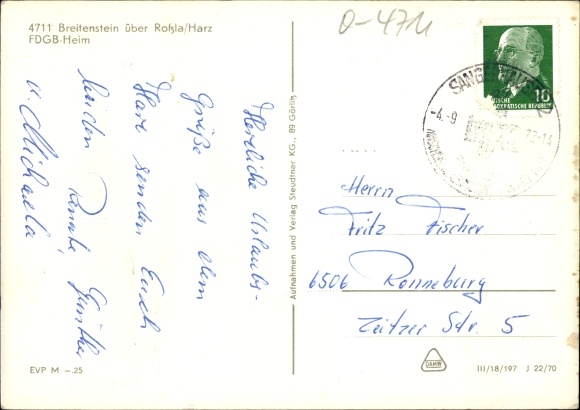 4711 Breitenstein über Roßla/Harz
FDGB-Heim
O-4711
10
DEMOKRATISCHE REPUBLIK
-4.-9
Herzliche Urlaubs-
Grüße aus dem
Harz senden Euch
beiden Renate, Günther
u. Michaela
Aufnahmen und Verlag Steudtner KG., 89 Görlitz
Herrn
Fritz Fischer
6506 Ronneburg
Zeitzer Str. 5
EVP M -.25
III/18/197 J 22/70